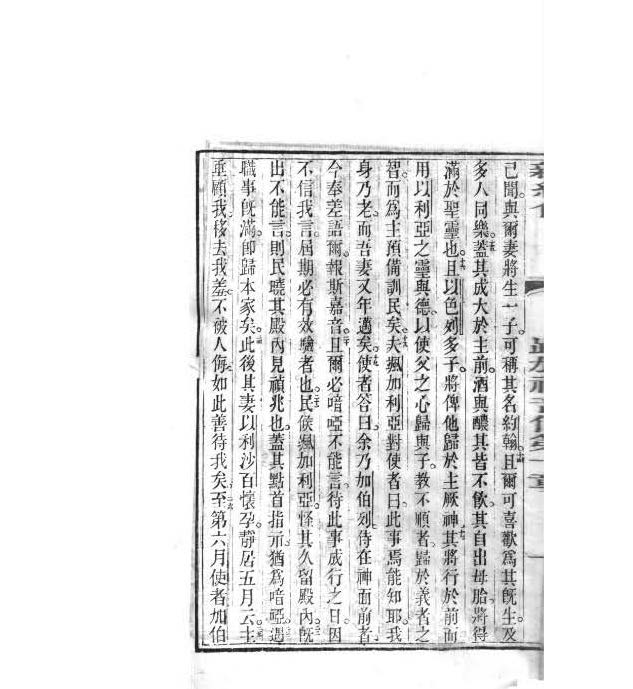 已聞。與爾妻將生一子。可稱其名約翰。且爾可喜歡為其既生及
多人同樂。蓋其成大於主前。酒與醲其皆不飲。其自出母胎將得
滿於聖靈也。且以色列多子。將俾他歸於主厥神。其將行於前而
用以利亞之靈與德。以使父之心歸與子。教不順者。歸於義者之
智。而為主預備訓民矣。夫颯加利亞對使者曰。此事焉能知耶。我
身乃老。而吾妻又年邁矣。使者答曰。余乃加伯列。侍在神面前者。
今奉差語爾。報斯嘉音。且爾必喑啞不能言。待此事成行之日。因
不信我言。屆期必有效驗者也。民候颯加利亞。怪其久留殿內。既
出不能言。則民曉其殿內見禎兆也。蓋其點首指示。猶為喑啞。遇
職事既滿。卽歸本家矣。此後其妻以利沙百懷孕。靜居五月云。主
垂顧我。移去我羞。不被人侮。如此善待我矣。至第六月使者加伯